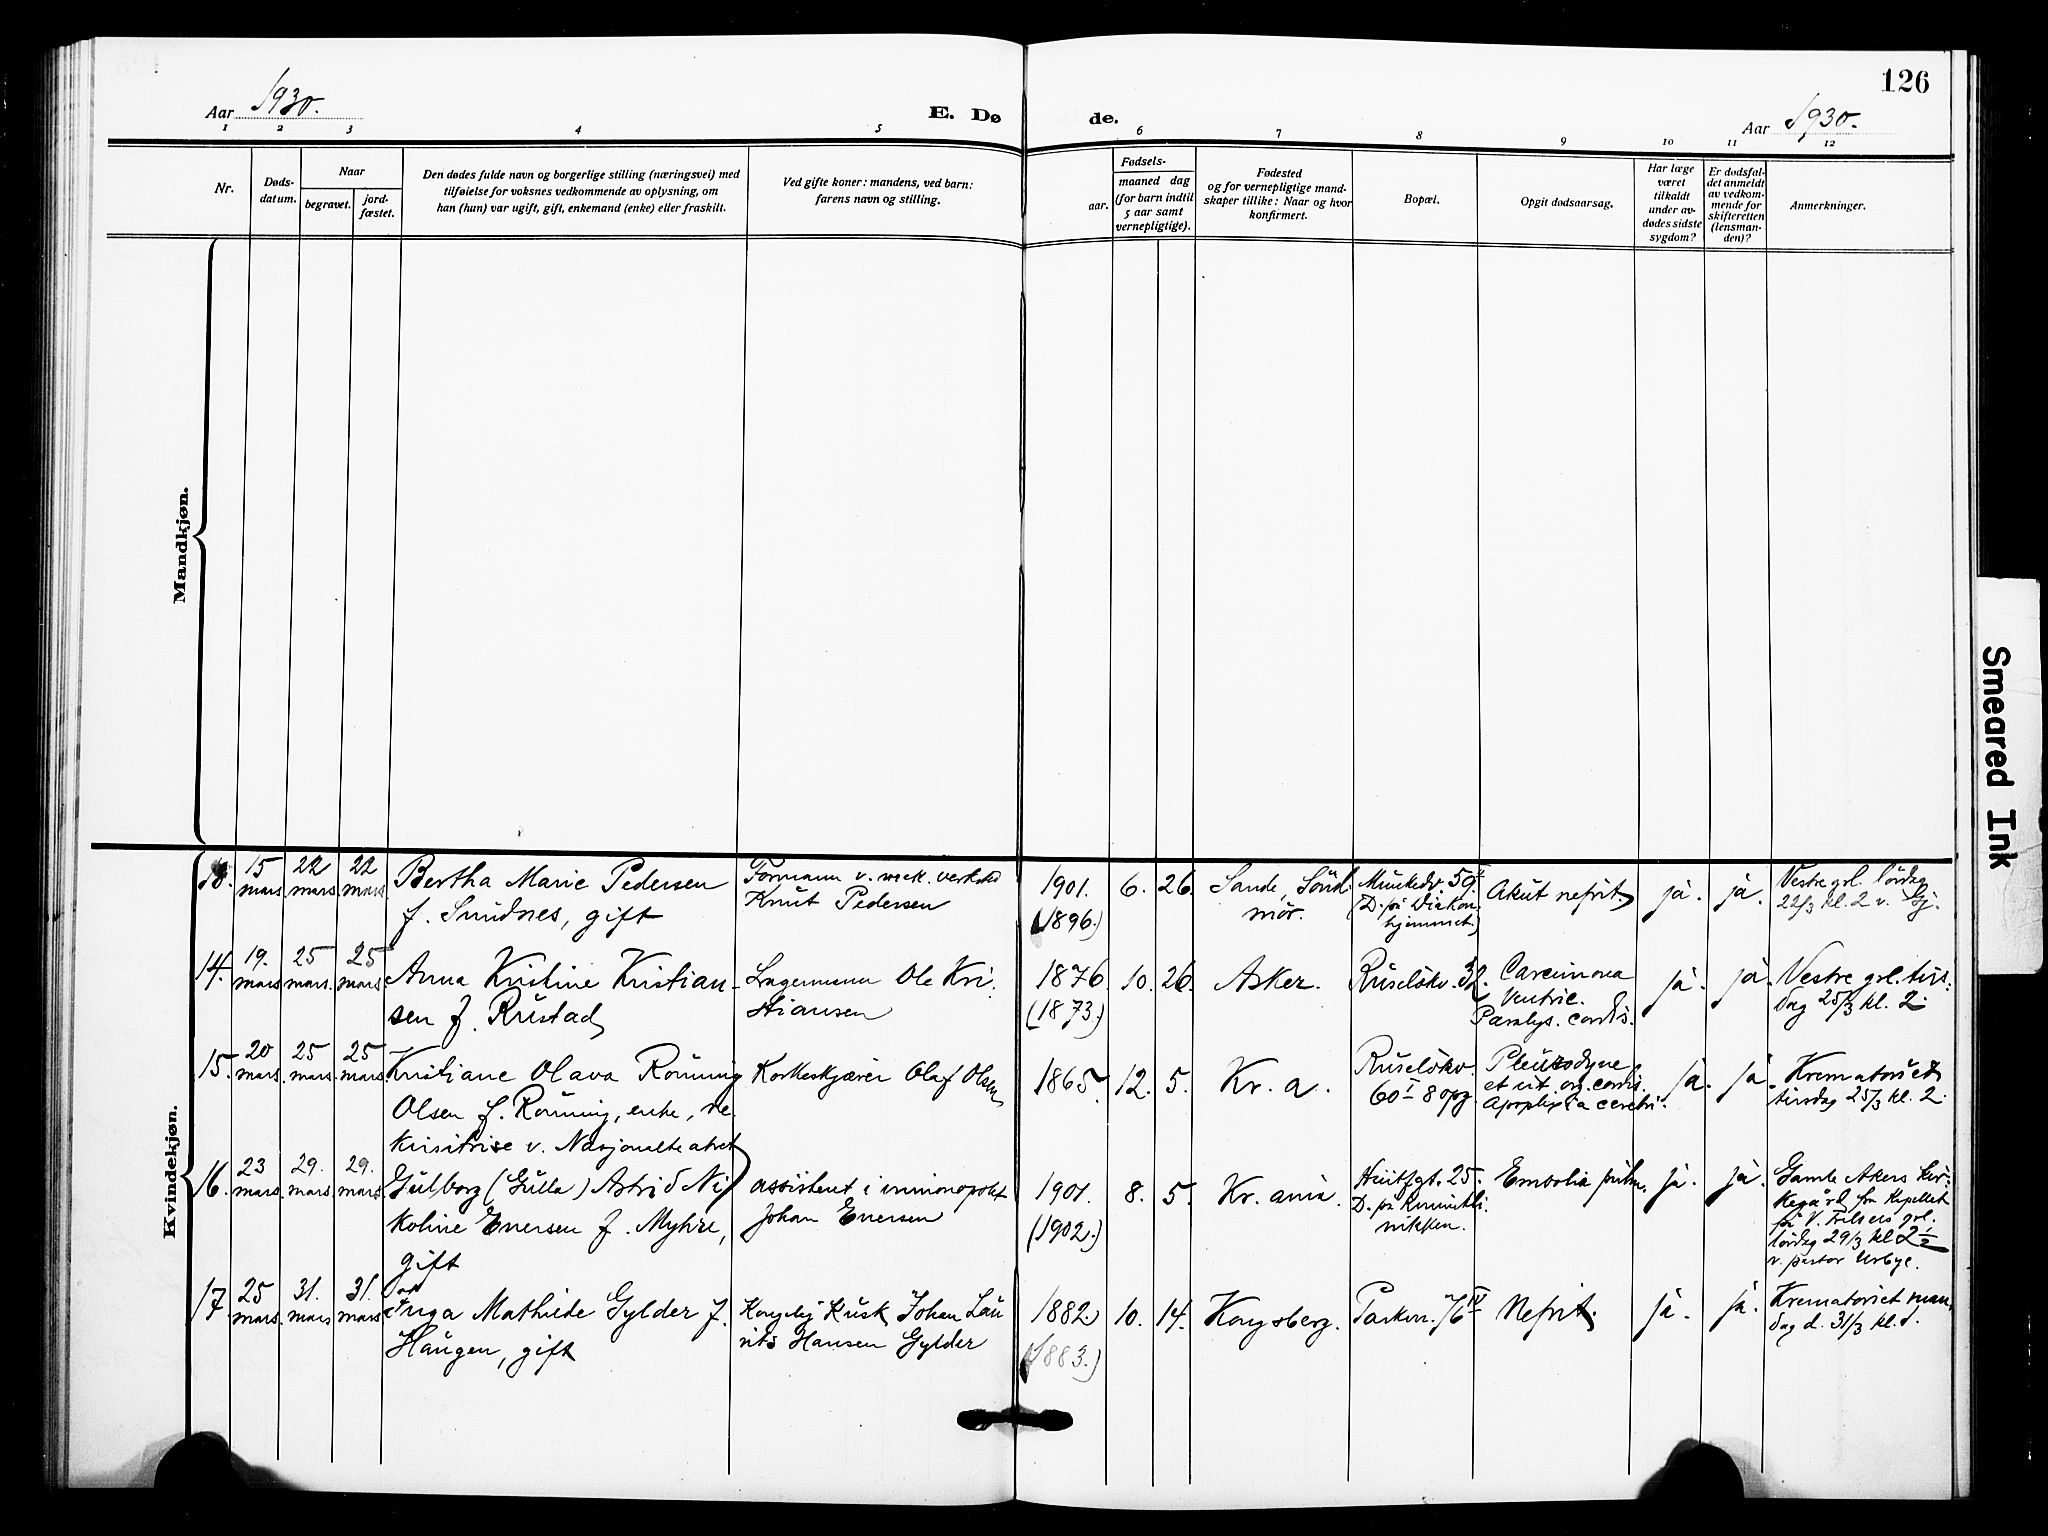 126
Aar 1930.
E. Dø
de.
Aar 1930.
1 2 3 4 5 6 7 8 9 10 11 12
Nr.
Døds-
datum.
Naar
begravet.
jord-
fæstet.
Den dødes fulde navn og borgerlige stilling (næringsvei) med
tilføielse for voksnes vedkommende av oplysning, om
han (hun) var ugift, gift, enkemand (enke) eller fraskilt.
Ved gifte koner: mandens, ved barn:
farens navn og stilling.
Fødsels-
aar.
maaned dag
(for barn indtil
5 aar samt
vernepligtige).
Fødested
og for vernepligtige mand-
skaper tillike: Naar og hvor
konfirmert.
Bopæl.
Opgit dødsaarsag.
Har læge
været
tilkaldt
under av-
dødes sidste
sygdom?
Er dødsfal-
det anmeldt
av vedkom-
mende for
skifteretten
(lensman-
den)?
Anmerkninger.
Mandkjøn.
Kvindekjøn.
15 mars 22 mars 22 mars
Bertha Marie Pedersen
f. Smidnes, gift
Formann v. mek. verksted
Knut Pedersen
1901.
(1896.)
6. 26.
Sande, Sönd.
mör.
Munkedv. 59
(D. på Diakon
hjemmet.)
Akut nefrit.
ja. ja.
Vestre grl. lördag
22/3 kl. 2 v.
14. 19. mars 25 mars. 25 mars
Anna Kristine Kristian-
sen f. Rustad
Lagermann Ole Kri
stiansen
1876
(1873.)
10. 26.
Asker.
Ruselökv. 32.
Carcinoma
Ventric.
Paralys. cordis.
ja. ja.
Vestre grl. tirs-
dag 25/3 kl. 2.
15. 20 mars. 25 mars 25 mars.
Kristiane Olava Rönning
Olsen f. Rönning, enke, re
kvisitrise v. Nasjonalteatret
Korkeskjærer Olaf Olsen
1865. 12. 5.
Kr. a.
Ruselökv.
60 I 8 opg.
Pleurodyne
et vit. org. cordis.
Apoplexia cerebri.
ja. ja.
Krematoriet
tirsdag 25/3 kl. 2.
16. 23 mars 29. mars 29. mars
Gulborg (Gulla) Astrid Ni
koline Evensen f. Myhre,
gift
assistent i vinmonopolet
Johan Evensen
1901.
(1902.)
8. 5.
Kr. ania.
Huitfgt. 25.
D. på Kvinnekli.
nikken.
Embolia pulm.
ja. ja.
Gamle Akers kir-
kegård fra Kapellet
på V. Frelsers grl.
lördag 29/3 kl. 2 1/2
v. pastor Urbye.
17. 25 mars. 31. mars 31. mars
Inga Mathilde Gylder f.
Haugen, gift
Kongelig Kusk Johan Lau
rits Hansen Gylder
1882.
(1883.)
10. 14.
Kongsberg.
Parkv. 76 IV
Nefrit.
ja. ja.
Krematoriet man-
dag d. 31/3 kl. 1.
Smeared Ink